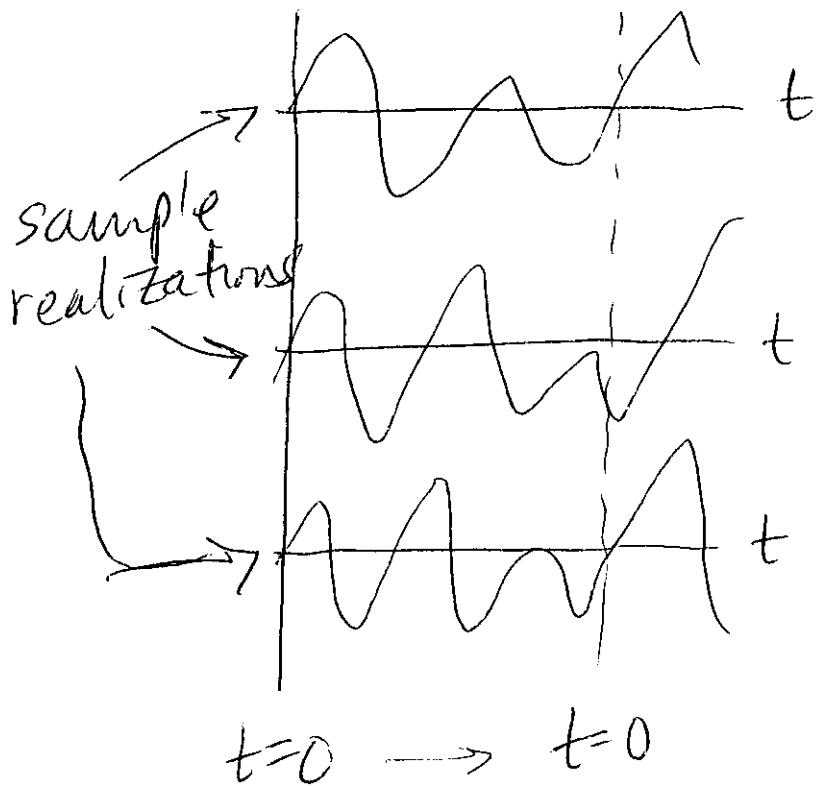 t
sample
realizations
t
t
t=0 → t=0